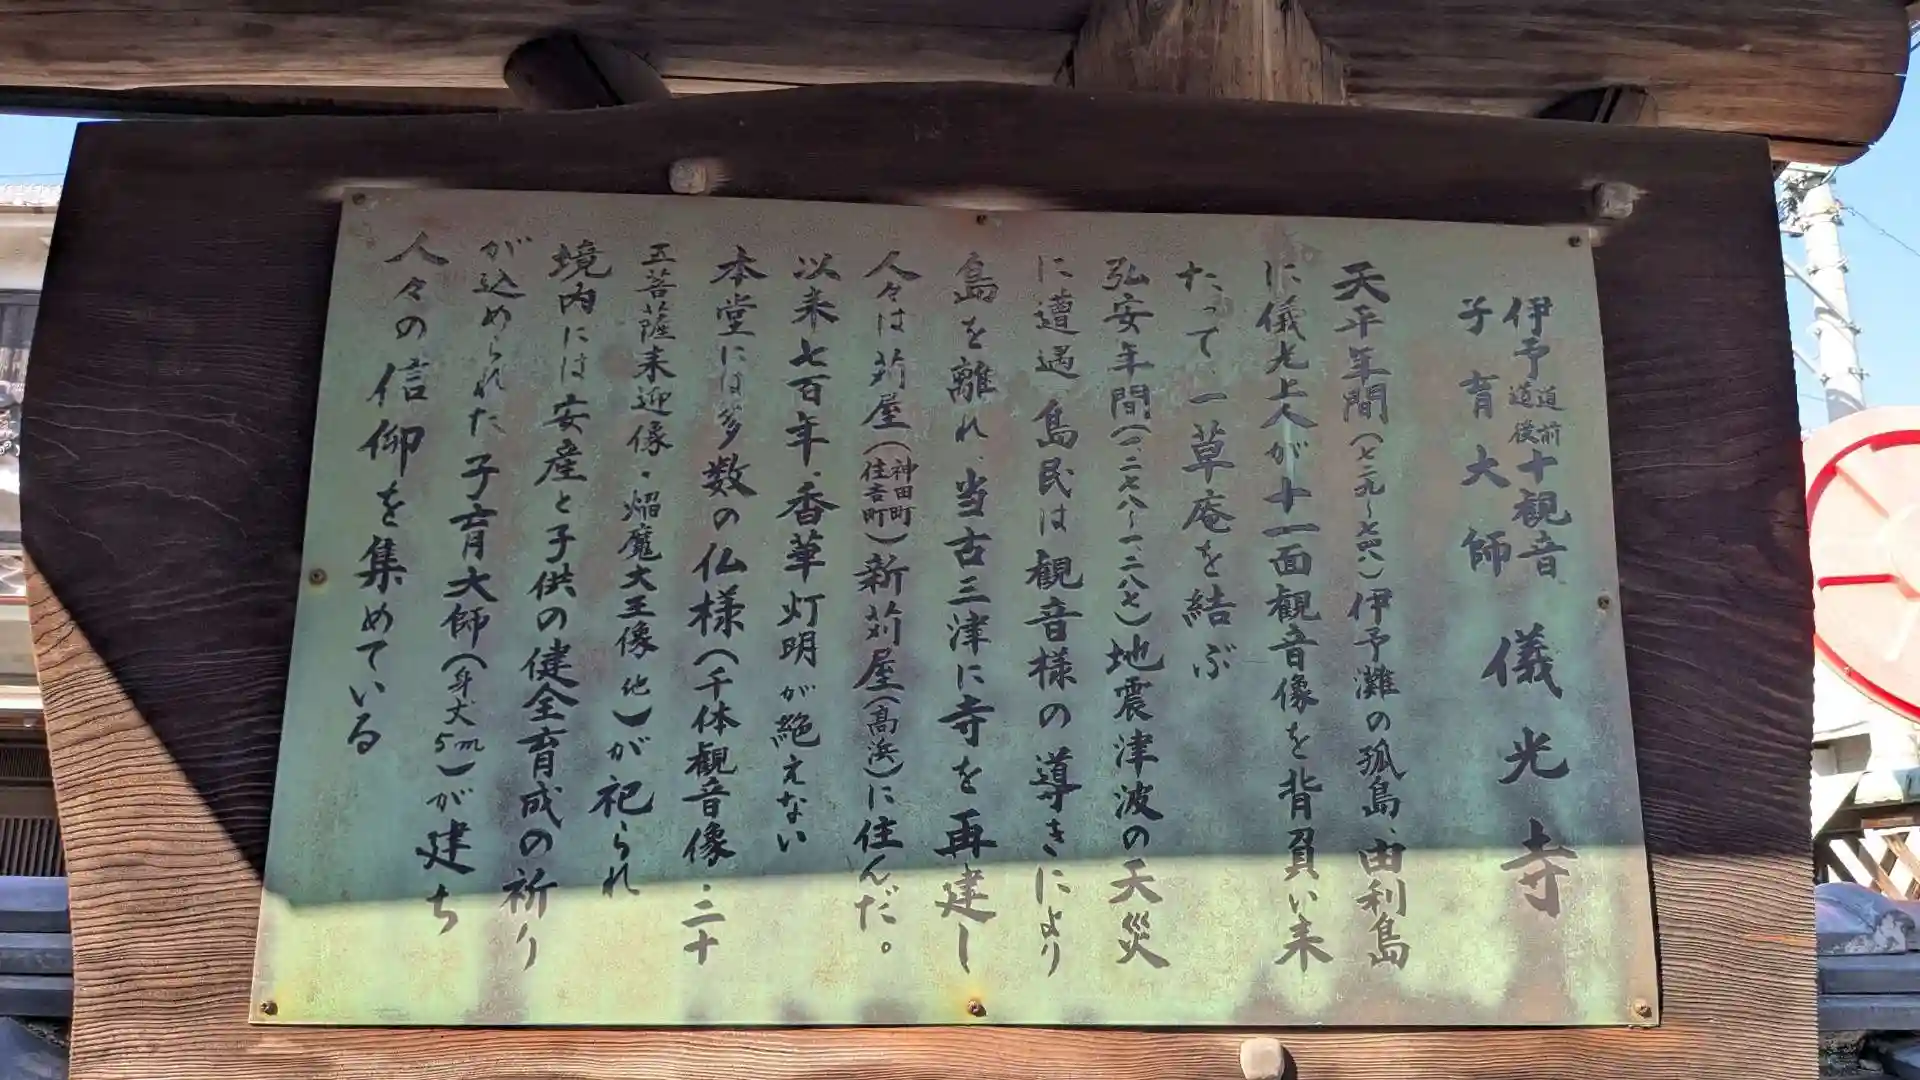 伊予道前道後十観音 儀光寺
子育大師
天平年間(七二九〜七四八)伊予灘の孤島、由利島
に儀光上人が十一面観音像を背負い来
たって、一草庵を結ぶ
弘安年間(一二七八〜一二八七)地震津波の天災
に遭遇、島民は観音様の導きにより
島を離れ、当古三津に寺を再建し
人々は苅屋(神田町住吉町)新苅屋(高浜)に住んだ。
以来七百年・香華灯明が絶えない
本堂には多数の仏様(千体観音像・二十
五菩薩来迎像・焔魔大王像他)が祀られ
境内には安産と子供の健全育成の祈り
が込められた子育大師(身丈5m)が建ち
人々の信仰を集めている